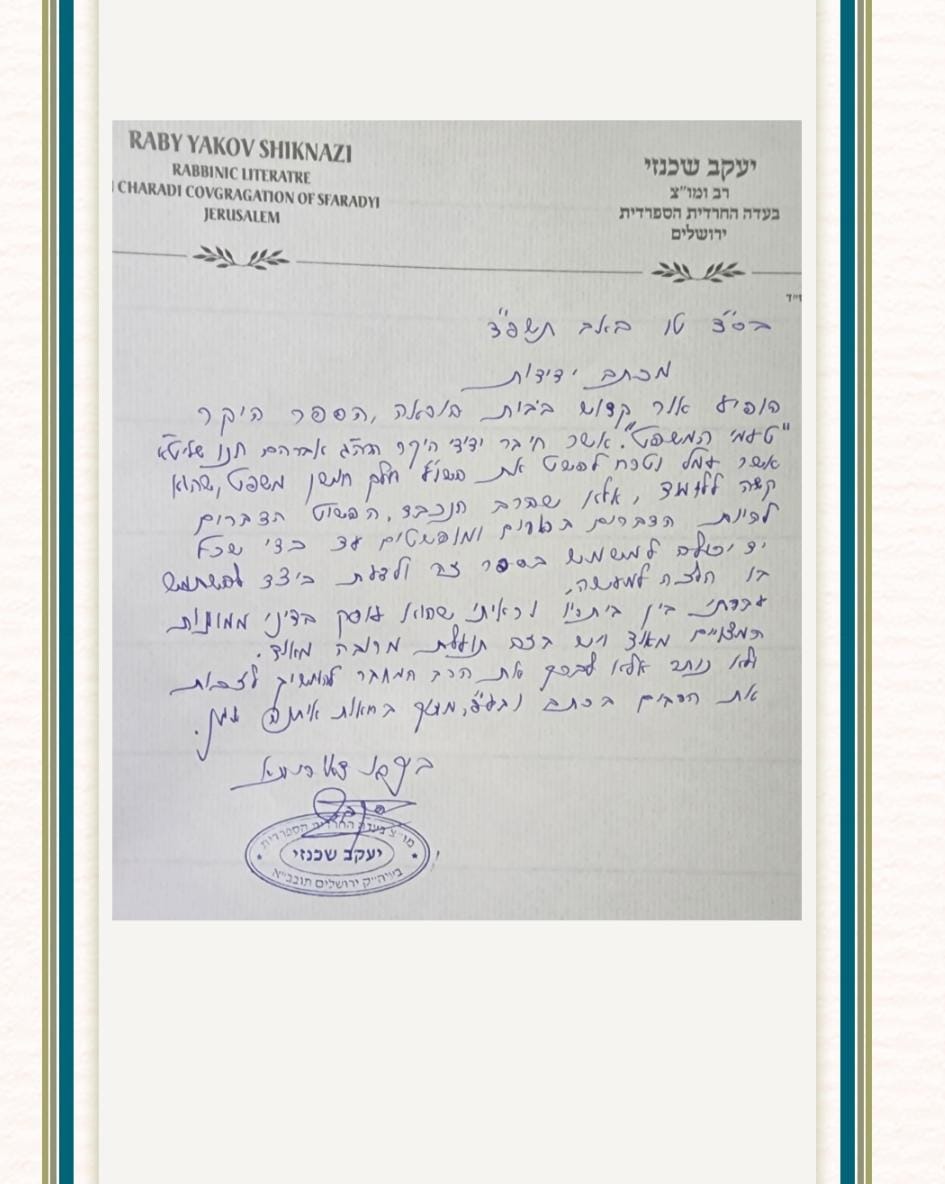 RABY YAKOV SHIKNAZI
RABBINIC LITERATRE
CHARADI COVGRAGATION OF SFARADYI
JERUSALEM
יעקב שכנזי
רב ומו״צ
בעדה החרדית הספרדית
ירושלים
בס״ד טו באב תשפ״ד
מכתב ידידות
הופיע אור קדוש בבות, הספר היקר
"טעמי המשפט". אשר חיבר ידידי היקר הה״ג אברהם חנו שליט״א
אשר עמל וטרח לפשט את השו״ע חלק חושן משפט, שהוא
קשה ללומד, אלא שהרב הנכבד, הפשיט הדברים
לפיכך הדברים ברורים ומופשטים עד כדי שכל
יד יכולה למשמש בספר זה ולדעת כיצד להשתמש
בו הלכה למעשה.
עברתי בין ביתריו וראיתי שהוא עוסק בדיני ממונות
המצויים מאוד ויש בזה תועלת מרובה מאוד.
ולא נותר אלא לברך את הרב המחבר להמשיך לזכות
את הרבים בכתב ובע״פ, מתוך בריאות איתנה אמן.
יעקב שכנזי
מו״צ בעדה החרדית הספרדית
בעיה״ק ירושלים תובב״א